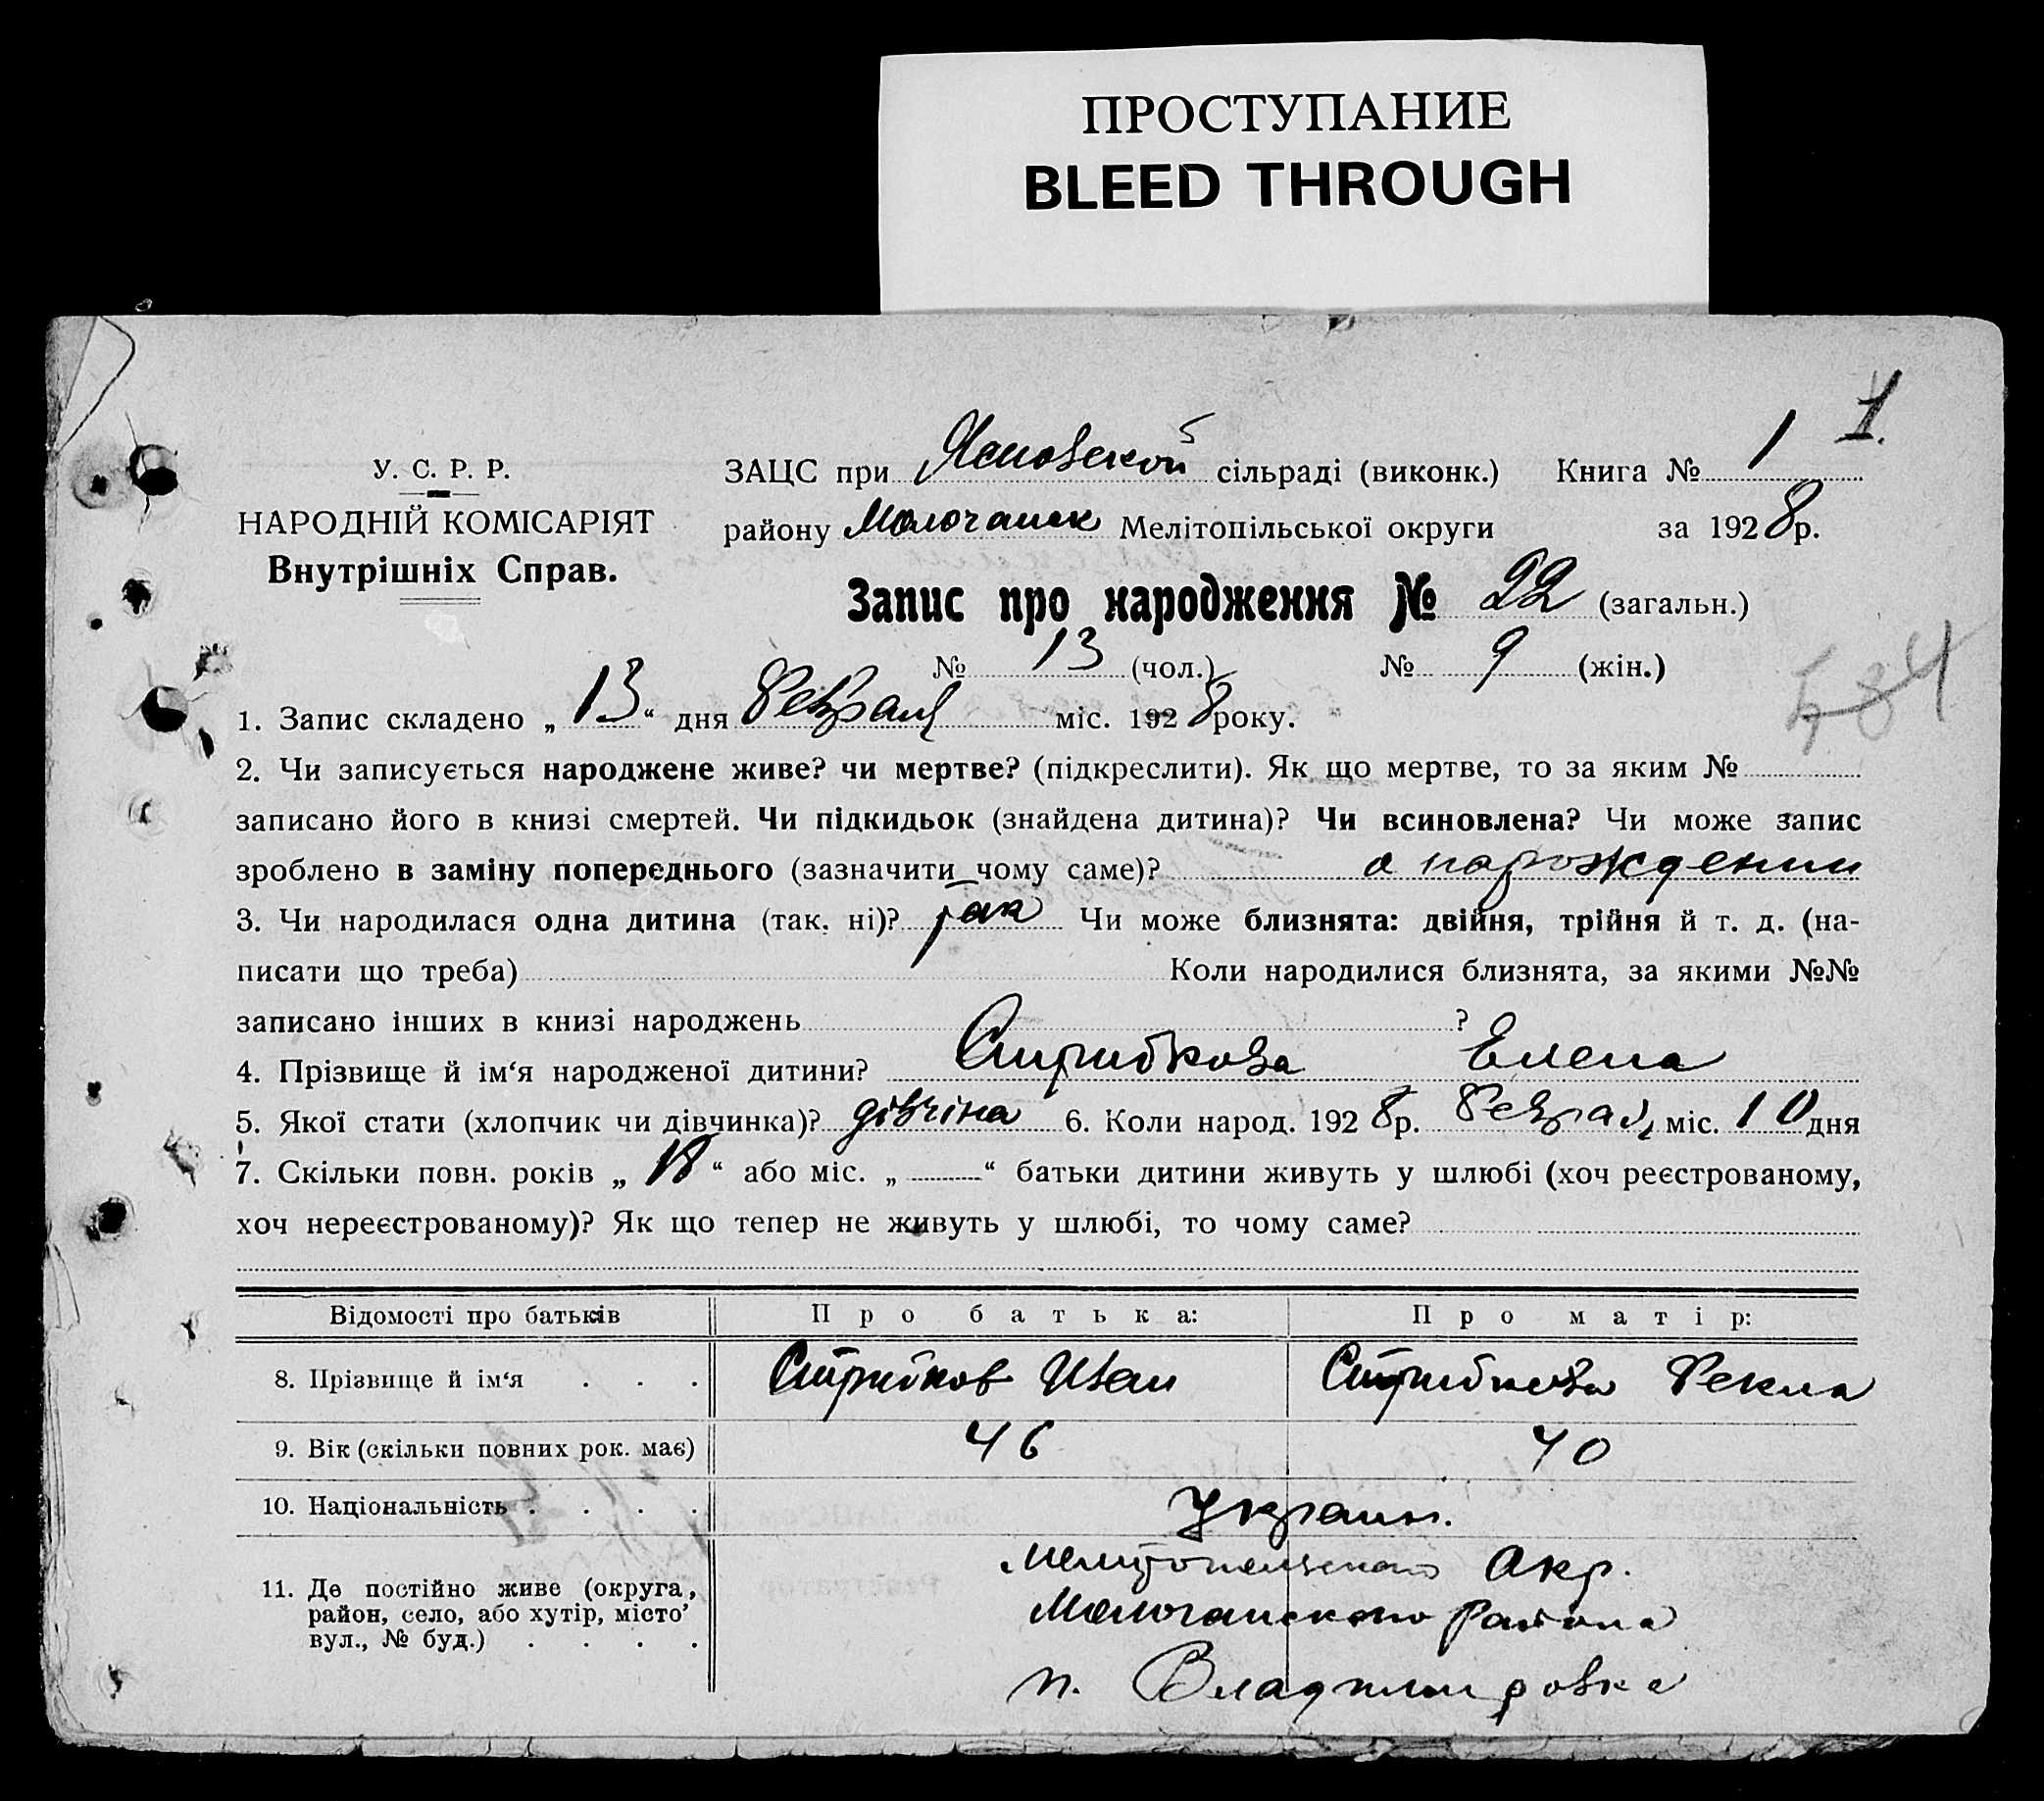 ПРОСТУПАНИЕ
BLEED THROUGH
1.
У. С. Р. Р.
НАРОДНІЙ КОМІСАРІЯТ
Внутрішніх Справ.
ЗАЦС при сільраді (виконк.) Книга № 1
району Молочанск Мелітопільської округи за 1928 р.
Запис про народження № 22 (загальн.)
№ 13 (чол.) № 9 (жін.)
584
1. Запис складено „ 13 “ дня Февраля міс. 1928 року.
2. Чи записується народжене живе? чи мертве? (підкреслити). Як що мертве, то за яким №
записано його в книзі смертей. Чи підкидьок (знайдена дитина)? Чи всиновлена? Чи може запис
зроблено в заміну попереднього (зазначити чому саме)? о нарождении
3. Чи народилася одна дитина (так, ні)? так Чи може близнята: двійня, трійня й т. д. (на-
писати що треба) Коли народилися близнята, за якими №№
записано інших в книзі народжень ?
4. Прізвище й ім‘я народженої дитини? Стрибкова Елена
5. Якої стати (хлопчик чи дівчинка)? дівчіна 6. Коли народ. 1928 р. Феврал, міс. 10 дня
7. Скільки повн. років „ 18 “ або міс. „ “ батьки дитини живуть у шлюбі (хоч реєстрованому,
хоч нереєстрованому)? Як що тепер не живуть у шлюбі, то чому саме?
Відомості про батьків Про батька: Про матір:
8. Прізвище й ім‘я . . . Стрибков Иван Стрибкова Фекла
9. Вік (скільки повних рок. має) 46 40
10. Національність . . . . Украин.
11. Де постійно живе (округа,
район, село, або хутір, місто’
вул., № буд.) . . . .
Мелитопельского Окр.
Молочанского Района
п. Владимировка